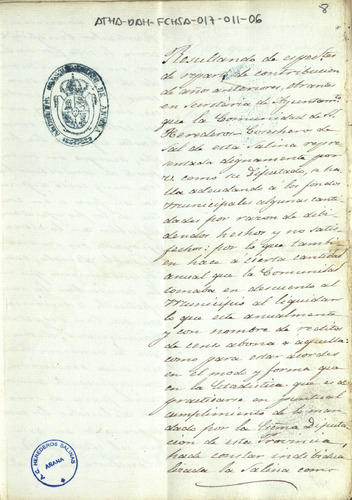 ATHA-DAH-FCHSA-017-011-06
8
Resultando de espedtes
de reparto de contribucion
de año anteriores, obrantes
en Secretaria de Ayuntamto
que la Comunidad de S.
Herederos Cosecheros de
Sal de esta Salina repre
sentada dignamente por
V. como su Diputado, se ha
lla adeudando á los fondos
Municipales algunas canti
dades por razon de divi
dendos hechos y no satis
fechos: por lo que tambi
en hace á cierta cantidad
anual que la Comunidad
tomaba en descuento al
Municipio al liquidar
lo que este anualmente
y con nombre de reditos
de censo abona á aquella:
como para estar acordes
en el modo y forma que
en la Estadistica que es de
practicarse en puntual
cumplimiento de lo man
dado por la Escma Diputa
cion de esta Provincia,
ha de constar individua
lizada la Salina como
A.C. HEREDEROS SALINAS
ARANA